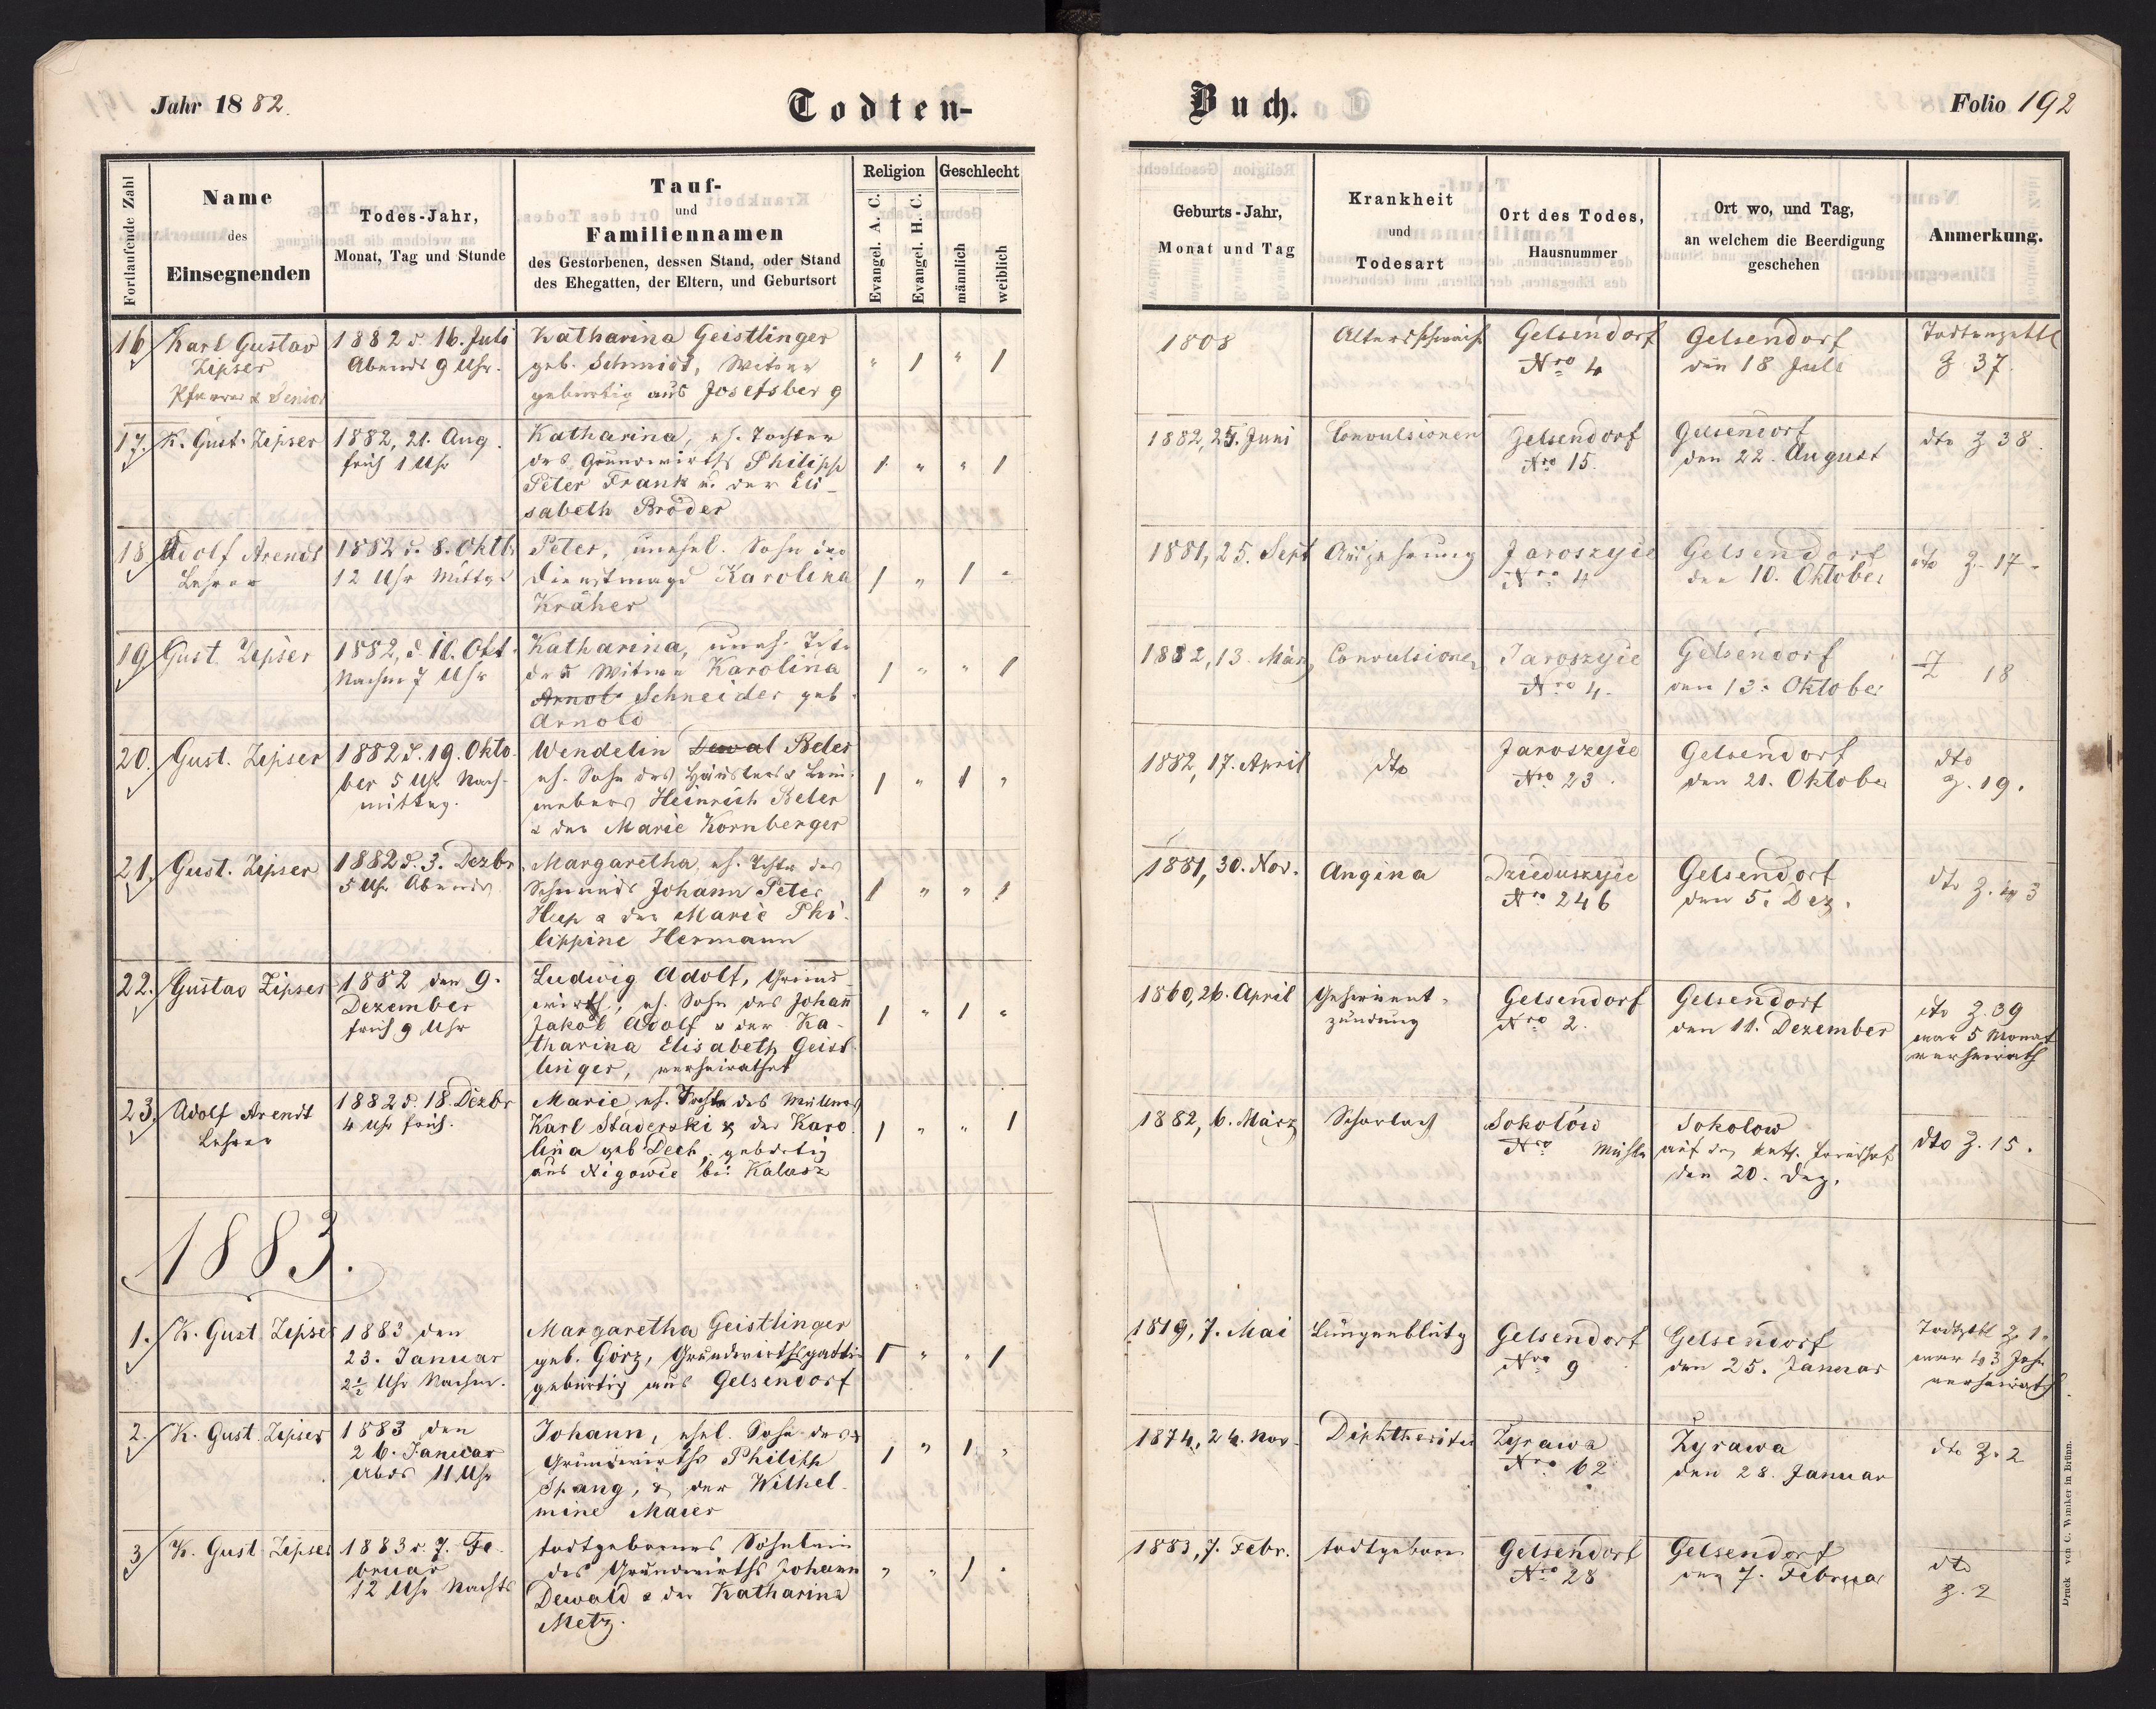 Jahr 1882.
Todten-
Buch.
Folio 192
Fortlaufende Zahl
Name
des
Einsegnenden
Todes-Jahr,
Monat, Tag und Stunde
Tauf-
und
Familiennamen
des Gestorbenen, dessen Stand, oder Stand
des Ehegatten, der Eltern, und Geburtsort
Religion
Evangel. A. C.
Evangel. H. C.
Geschlecht
männlich
weiblich
Geburts-Jahr,
Monat und Tag
Krankheit
und
Todesart
Ort des Todes,
Hausnummer
Ort wo, und Tag,
an welchem die Beerdigung
geschehen
Anmerkung.
16
Karl Gustav
Zipser
Pfarrer & Senior
1882 d. 16. Juli
Abends 9 Uhr.
Katharina Geistlinger
geb. Schmidt, Witwe
gebürtig aus Josefsberg
" / " /
1808
Altersschwäche
Gelsendorf
Nro 4
Gelsendorf
den 18 Juli
Todtenzettel
Z 37.
17.
K. Gust. Zipser
1882, 21. Aug.
früh 1 Uhr
Katharina, eh. Tochter
des Grundwirths Philipp
Peter Frank u. der Eli-
sabeth Bröder
/ " " /
1882, 25. Juni
Convulsionen
Gelsendorf
Nro 15.
Gelsendorf
den 22. August
dto Z 38.
18
Adolf Arendt
Lehrer
1882 d. 8. Oktb.
12 Uhr Mittgs
Peter, unehel. Sohn der
Dienstmagd Karolina
Kräher
/ " / "
1881, 25. Sept
Auszehrung
Jaroszyie
Nro 4
Gelsendorf
den 10. Oktober
dto Z. 17.
19
Gust. Zipser
1882, d. 11. Okt.
Nachm 7 Uhr
Katharina, uneh. Tcht.
der Witwe Karolina
Arnol Schneider geb.
Arnold
/ " " /
1882, 13. März
Convulsionen
Jaroszyie
Nro 4.
Gelsendorf
den 13. Oktober
Z 18
20.
Gust. Zipser
1882 d. 19. Okto-
ber 5 Uhr Nach-
mittag.
Wendelin Beler
eh. Sohn des Häuslers & Lein-
webers Heinrich Beler
& der Marie Kornberger
/ " / "
1882, 17. April
dto
Jaroszyie
Nro 23.
Gelsendorf
den 21. Oktober
dto
Z. 19.
21.
Gust. Zipser
1882 d. 3. Dezbr
5 Uhr Abends
Margaretha, eh. Tchtr des
Schmieds Johann Peter
Hup & der Marie Phi-
lippine Hermann
/ " " /
1881, 30. Nov.
Angina
Dzieduszyie
Nro 246
Gelsendorf
den 5. Dez.
dto Z. 3
22.
Gustav Zipser
1882 den 9.
Dezember
früh 9 Uhr
Ludwig Adolf, Grund-
wirth, eh. Sohn des Johann
Jakob Adolf & der Ka-
tharina Elisabeth Geist-
linger, verheirathet
/ " / "
1860, 26. April
Gehirnent-
zündung
Gelsendorf
Nro 2.
Gelsendorf
den 11. Dezember
dto Z. 39
war 5 Monat
verheirath
23.
Adolf Arendt
Lehrer
1882 d. 18. Dezbr
4 Uhr früh.
Marie, eh. Tochter des Müllners
Karl Staderski & der Karo-
lina geb Dech, gebürtig
aus Nigowie bei Kalusz
/ " " /
1882, 6. März
Scharlach
Sokolów
Nro Mühle
Sokolow
auf dem kath. Friedhof
den 20. Dez.
dto Z. 15.
1883.
1.
K. Gust. Zipser
1883 den
23. Januar
2½ Uhr Nachm.
Margaretha Geistlinger
geb. Görz, Grundwirthsgattin
gebürtig aus Gelsendorf
/ " " /
1819, 7. Mai
Lungenblutg
Gelsendorf
Nro 9
Gelsendorf
den 25. Januar
Todtzttl Z. 1.
war 43 Jahr
verheirath.
2.
K. Gust. Zipser
1883 den
26. Januar
Abds 11 Uhr
Johann, ehel. Sohn des
Grundwirths Philipp
Spang, & der Wilhel-
mine Maier
/ " / "
1874, 24. Nov.
Diphtheritis
Zyrawa
Nro 62
Zyrawa
den 28. Januar
dto Z. 2
3
K. Gust. Zipser
1883 d. 7. Fe-
bruar
12 Uhr Nachts
todtgebornes Söhnlein
des Grundwirths Johann
Dewald & der Katharina
Metz.
" " / "
1883, 7. Febr.
todtgeboren
Gelsendorf
Nro 28
Gelsendorf
den 7. Februar
dto
Z. 2
Druck von C. Winiker in Brünn.